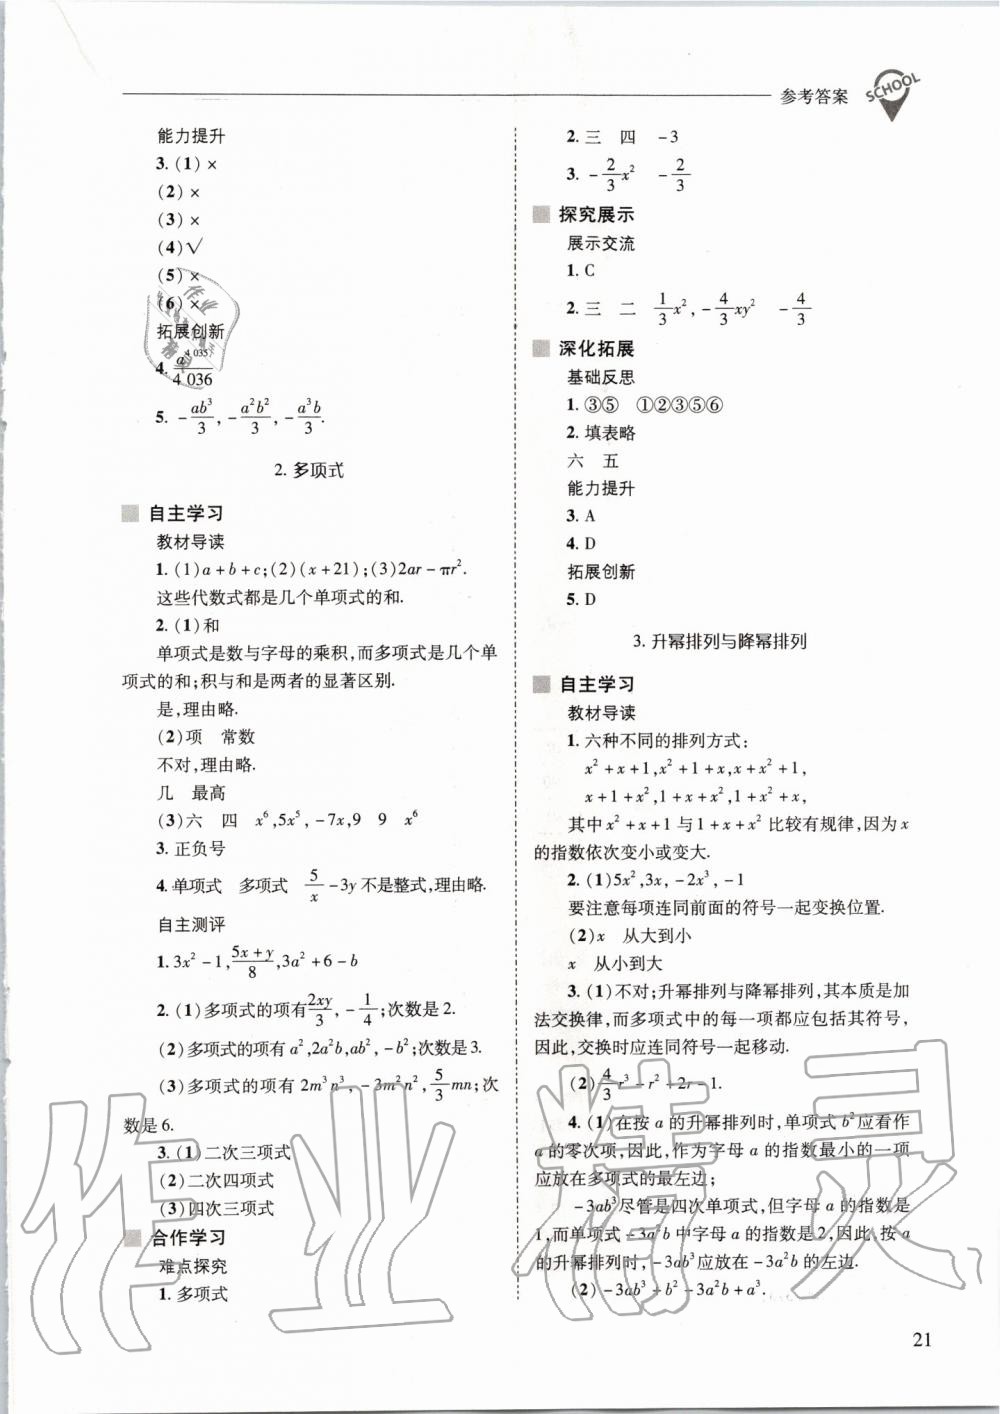 参考答案
SCHOOL
能力提升
3. (1) ×
(2) ×
(3) ×
(4) √
(5) ×
(6) ×
拓展创新
4. a^{4 035}/4 036
5. -ab³/3, -a²b²/3, -a³b/3.
2. 多项式
自主学习
教材导读
1. (1) a+b+c; (2) (x+21); (3) 2ar-πr².
这些代数式都是几个单项式的和.
2. (1) 和
单项式是数与字母的乘积,而多项式是几个单
项式的和;积与和是两者的显著区别.
是,理由略.
(2) 项 常数
不对,理由略.
几 最高
(3) 六 四 x⁶,5x⁵,-7x,9 9 x⁶
3. 正负号
4. 单项式 多项式 5/x-3y 不是整式,理由略.
自主测评
1. 3x²-1, (5x+y)/8, 3a²+6-b
2. (1) 多项式的项有 2xy/3, -1/4; 次数是 2.
(2) 多项式的项有 a²,2a²b,ab²,-b²; 次数是 3.
(3) 多项式的项有 2m³n³,-3m²n²,5/3mn; 次
数是 6.
3. (1) 二次三项式
(2) 二次四项式
(3) 四次三项式
合作学习
难点探究
1. 多项式
2. 三 四 -3
3. -2/3x² -2/3
探究展示
展示交流
1. C
2. 三 二 1/3x²,-4/3xy² -4/3
深化拓展
基础反思
1. ③⑤ ①②③⑤⑥
2. 填表略
六 五
能力提升
3. A
4. D
拓展创新
5. D
3. 升幂排列与降幂排列
自主学习
教材导读
1. 六种不同的排列方式:
x²+x+1,x²+1+x,x+x²+1,
x+1+x²,1+x+x²,1+x²+x,
其中 x²+x+1 与 1+x+x² 比较有规律,因为 x
的指数依次变小或变大.
2. (1) 5x²,3x,-2x³,-1
要注意每项连同前面的符号一起变换位置.
(2) x 从大到小
x 从小到大
3. (1) 不对;升幂排列与降幂排列,其本质是加
法交换律,而多项式中的每一项都应包括其符号,
因此,交换时应连同符号一起移动.
(2) 4/3r³-r²+2r-1.
4. (1) 在按 a 的升幂排列时,单项式 b² 应看作
a 的零次项,因此,作为字母 a 的指数最小的一项
应放在多项式的最左边;
-3ab³ 尽管是四次单项式,但字母 a 的指数是
1,而单项式 -3a²b 中字母 a 的指数是 2,因此,按 a
的升幂排列时,-3ab³ 应放在 -3a²b 的左边.
(2) -3ab³+b²-3a²b+a³.
21
作业精灵